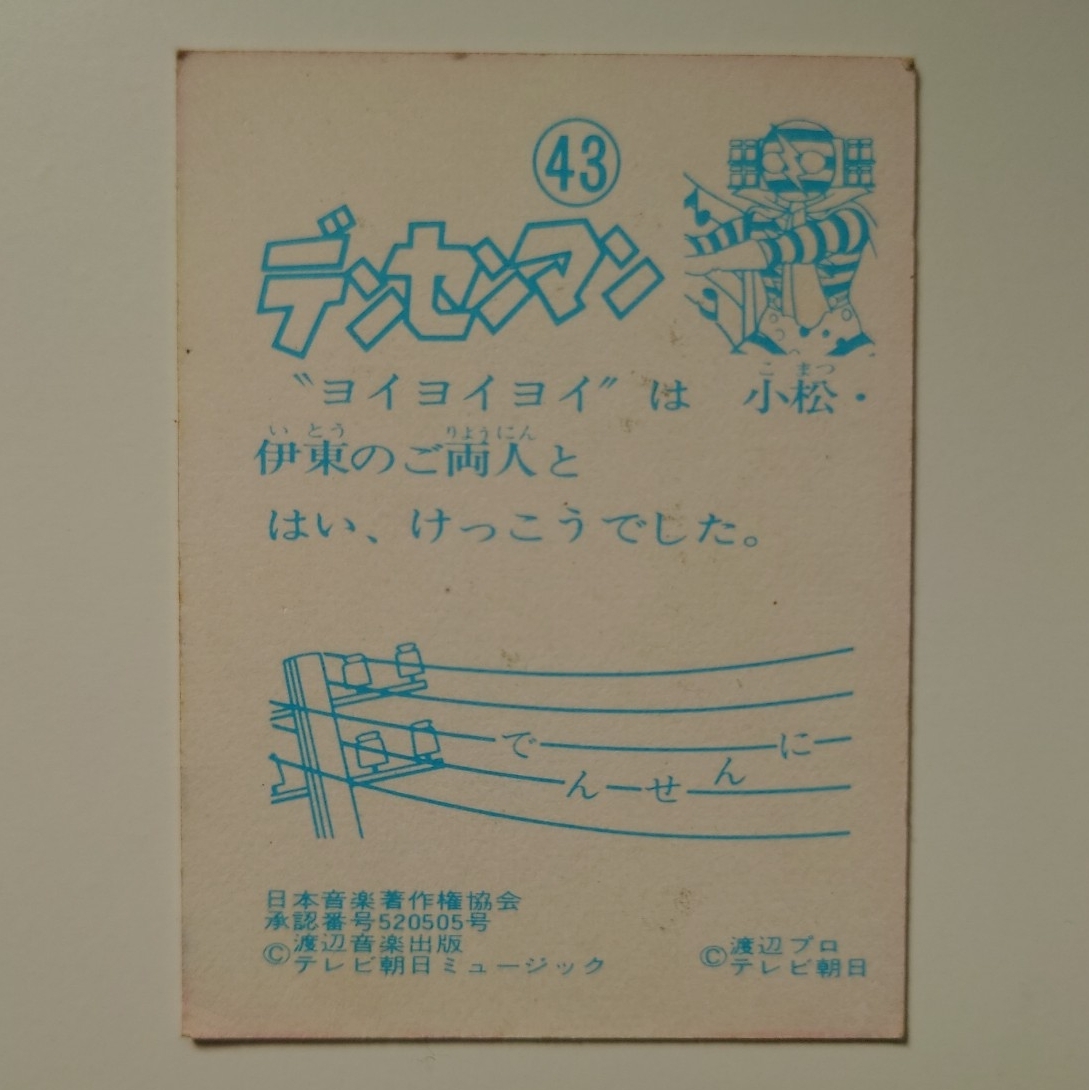 43
デンセンマン
〝ヨイヨイヨイ〞は 小松・
こ まつ
伊東のご両人と
い とう りょうにん
はい、けっこうでした。
でんせんに
日本音楽著作権協会
承認番号520505号
©渡辺音楽出版
テレビ朝日ミュージック
©渡辺プロ
テレビ朝日